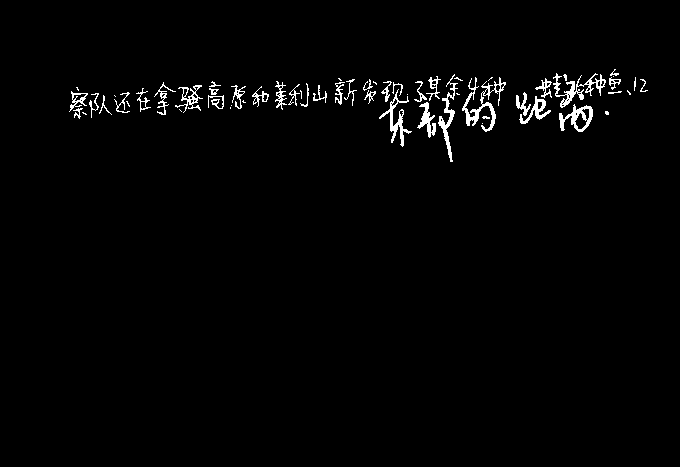 察队还在拿骚高原和莱利山新发现了其余4种 蛙、种鱼、12
东部的距离.